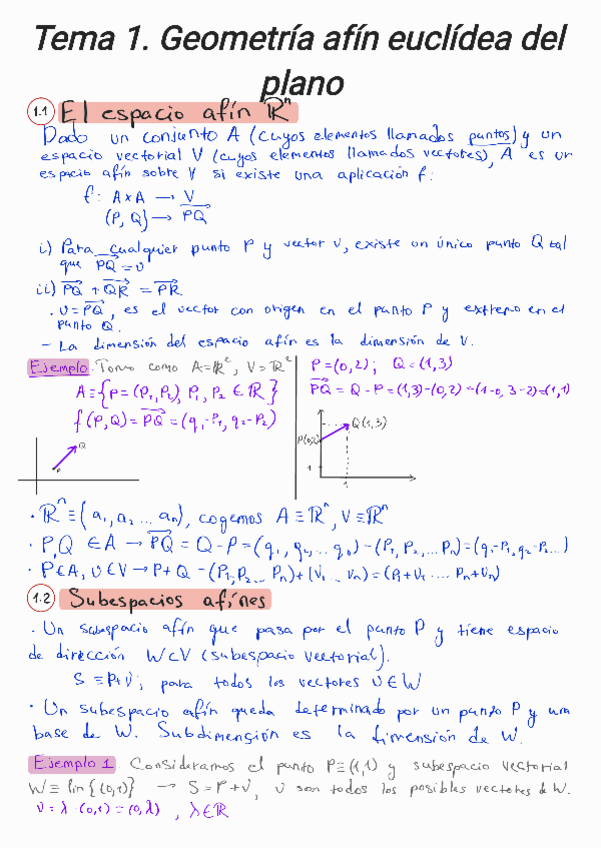 Tema 1. Geometría afín euclídea del
plano
1.1 El espacio afín ℝⁿ
Dado un conjunto A (cuyos elementos llamados puntos) y un
espacio vectorial V (cuyos elementos llamados vectores), A es un
espacio afín sobre V si existe una aplicación f:
f: A×A → V
(P, Q) → PQ⃗
i) Para cualquier punto P y vector v, existe un único punto Q tal
que PQ⃗ = v
ii) PQ⃗ + QR⃗ = PR⃗
· v = PQ⃗, es el vector con origen en el punto P y extremo en el
punto Q.
- La dimensión del espacio afín es la dimensión de V.
Ejemplo. Tomo como A=ℝ², V=ℝ²
A≡{P=(P₁,P₂), P₁, P₂ ∈ ℝ}
f(P,Q)=PQ⃗=(q₁-P₁, q₂-P₂)
Q
P
P=(0,2); Q=(1,3)
PQ⃗ = Q-P=(1,3)-(0,2)=(1-0, 3-2)=(1,1)
Q(1,3)
P(0,2)
1
1
· ℝⁿ≡(a₁, a₂ ... aₙ), cogemos A≡ℝⁿ, V≡ℝⁿ
· P,Q ∈ A → PQ⃗ = Q-P=(q₁, q₂, ... qₙ)-(P₁, P₂, ... Pₙ)=(q₁-P₁, q₂-P₂...)
· P∈A, v∈V → P+Q -(P₁, P₂ ... Pₙ)+(V₁ ... Vₙ)=(P₁+V₁ .... Pₙ+Vₙ)
1.2 Subespacios afines
· Un subespacio afín que pasa por el punto P y tiene espacio
de dirección W⊂V (subespacio vectorial).
S≡P+v; para todos los vectores v∈W
· Un subespacio afín queda determinado por un punto P y una
base de W. Subdimensión es la dimensión de W.
Ejemplo 1 Consideramos el punto P≡(1,1) y subespacio vectorial
W≡lin{(0,1)} → S=P+v, v son todos los posibles vectores de W.
v=λ·(0,1)=(0,λ), λ∈ℝ